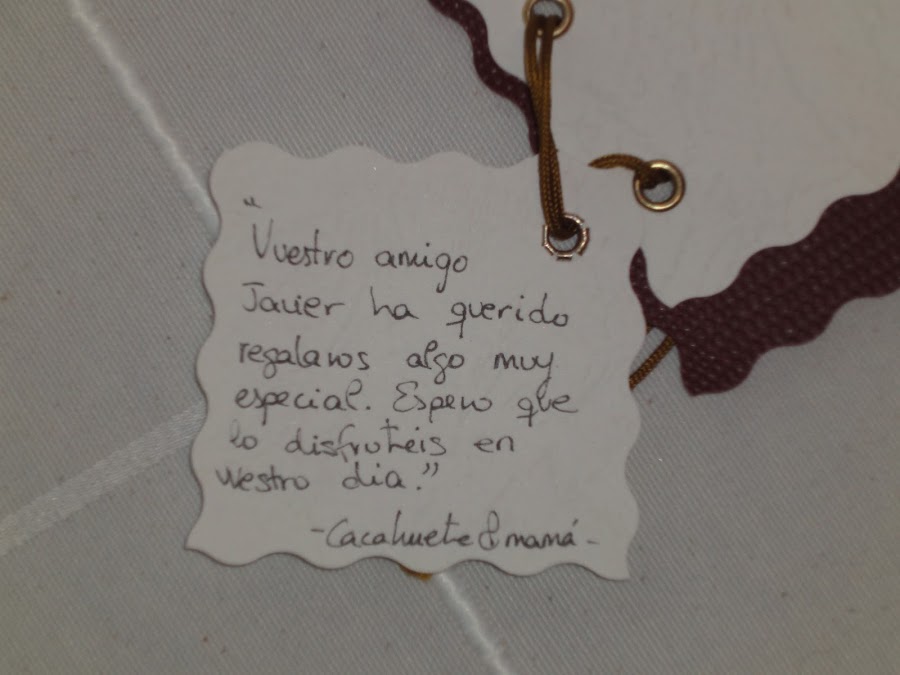 “
Vuestro amigo
Javier ha querido
regalaros algo muy
especial. Espero que
lo disfrutéis en
vuestro dia.”
-Cacahuete & mamá-